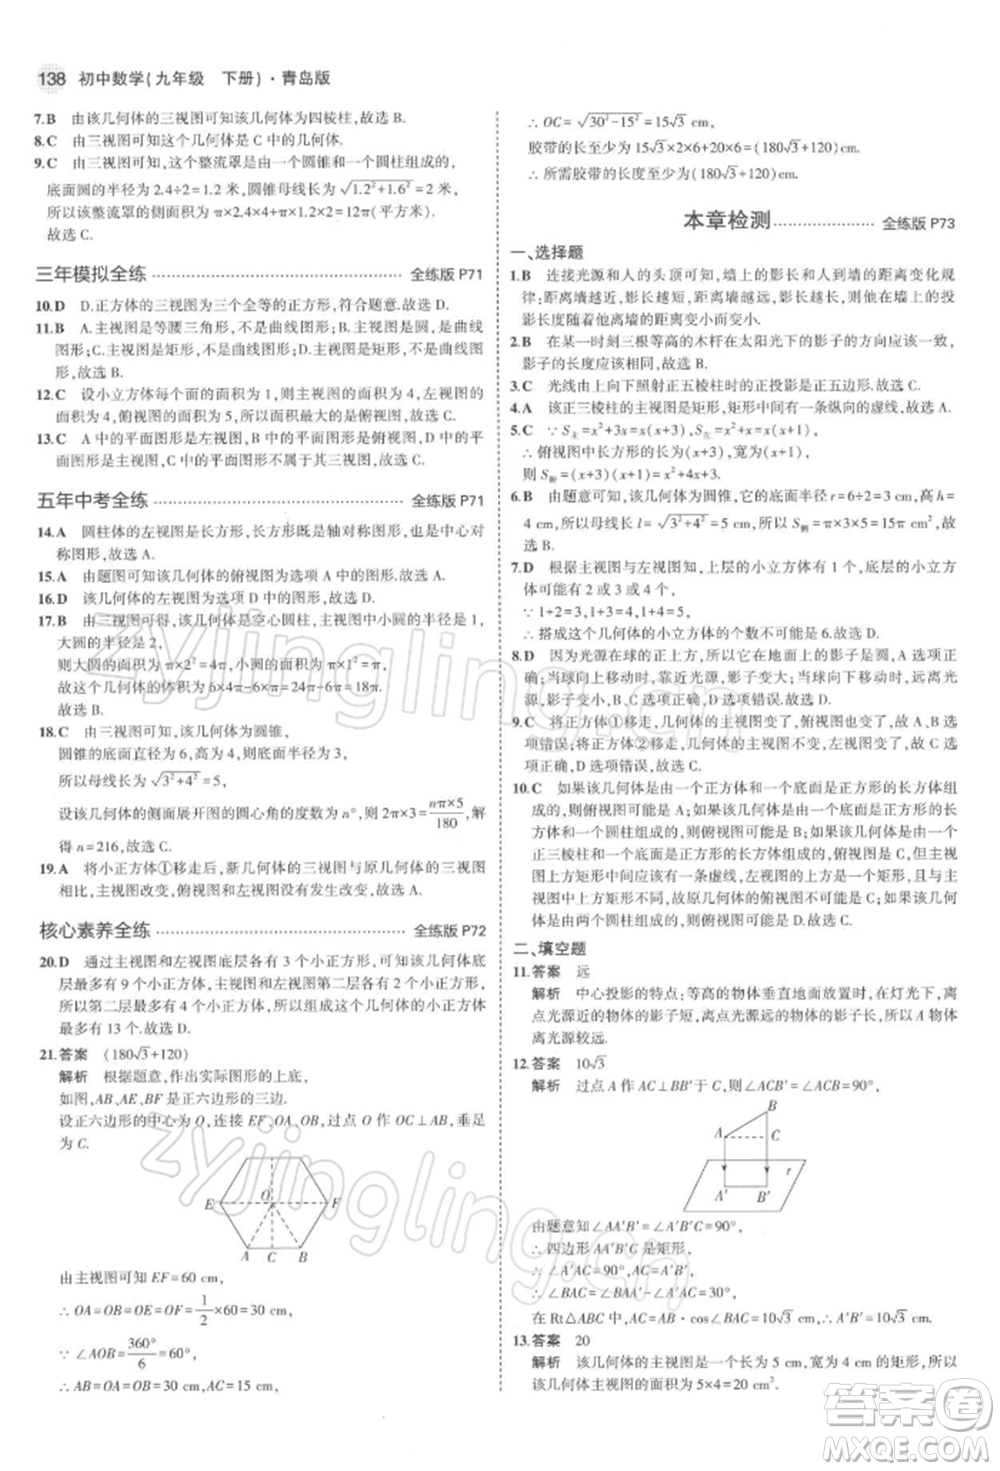 138 初中数学(九年级 下册)·青岛版
7.B 由该几何体的三视图可知该几何体为四棱柱,故选 B.
8.C 由三视图可知这个几何体是 C 中的几何体.
9.C 由三视图可知,这个整流罩是由一个圆锥和一个圆柱组成的,
底面圆的半径为 2.4÷2=1.2 米,圆锥母线长为√(1.2²+1.6²)=2 米,
所以该整流罩的侧面积为 π×2.4×4+π×1.2×2=12π(平方米).
故选 C.
三年模拟全练 全练版 P71
10.D D.正方体的三视图为三个全等的正方形,符合题意.故选 D.
11.B A.主视图是等腰三角形,不是曲线图形;B.主视图是圆,是曲线
图形;C.主视图是矩形,不是曲线图形;D.主视图是矩形,不是曲线
图形,故选 B.
12.C 设小立方体每个面的面积为 1,则主视图的面积为 4,左视图的
面积为 4,俯视图的面积为 5,所以面积最大的是俯视图.故选 C.
13.C A 中的平面图形是左视图,B 中的平面图形是俯视图,D 中的平
面图形是主视图,C 中的平面图形不属于其三视图.故选 C.
五年中考全练 全练版 P71
14.A 圆柱体的左视图是长方形,长方形既是轴对称图形,也是中心对
称图形,故选 A.
15.A 由题图可知该几何体的俯视图为选项 A 中的图形.故选 A.
16.D 该几何体的左视图为选项 D 中的图形,故选 D.
17.B 由三视图可得,该几何体是空心圆柱,其小圆的半径是 1,
大圆的半径是 2,
则大圆的面积为 π×2²=4π,小圆的面积为 π×1²=π,
故这个几何体的体积为 6×4π-6×π=24π-6π=18π.
故选 B.
18.C 由三视图可知,该几何体为圆锥,
圆锥的底面直径为 6,高为 4,所以底面半径为 3,
所以母线长为√(3²+4²)=5,
设该几何体的侧面展开图的圆心角的度数为 n°,则 2π×3=nπ×5/180,解
得 n=216,故选 C.
19.A 将小正方体①移走后,新几何体的三视图与原几何体的三视图
相比,主视图改变,俯视图和左视图没有发生改变.故选 A.
核心素养全练 全练版 P72
20.D 通过主视图和左视图底层各有 3 个小正方形,可知该几何体底
层最多有 9 个小正方体,主视图和左视图第二层各有 2 个小正方
形,所以第二层最多有 4 个小正方体,所以该几何体的小正方体
最多有 13 个.故选 D.
21.答案 (180√3+120)
解析 根据题意,作出实际图形的上底,
如图,AB,AE,BF 是正六边形的三边.
设正六边形的中心为 O,连接 EF,OA,OB,过点 O 作 OC⊥AB,垂足
为 C.
E O F
A C B
由主视图可知 EF=60 cm,
∴ OA=OB=OE=OF=1/2×60=30 cm,
∵ ∠AOB=360°/6=60°,
∴ AB=OA=OB=30 cm,AC=15 cm,
∴ OC=√(30²-15²)=15√3 cm,
胶带的长至少为 15√3×2×6+20×6=(180√3+120)cm.
∴ 所需胶带的长度至少为(180√3+120)cm.
本章检测 全练版 P73
一、选择题
1.B 连接光源和人的头顶可知,墙上的影长和人到墙的距离变化规
律是:距离墙越近,影长越短,距离墙越远,影长越长.则他在墙上的
投影长度随着他离墙的距离变小而变小.故选 B.
2.B 在某一时刻三根等高的木杆在太阳光下的影子的方向应该一致,
影子的长度应该相同,故选 B.
3.C 光线由上向下照射正五棱柱时的正投影是正五边形.故选 C.
4.A 该正三棱柱的主视图是矩形,矩形中间有一条纵向的虚线,故选 A.
5.C ∵ S主=x²+3x=x(x+3),S左=x²+x=x(x+1),
∴ 俯视图的长为(x+3),宽为(x+1),
则 S俯=(x+3)(x+1).故选 C.
6.B 由题意可知,该几何体为圆锥,它的底面半径 r=6÷2=3,高 h=
4,所以母线长 l=√(3²+4²)=5 cm,所以 S侧=π×3×5=15π cm²,故
选 B.
7.D 根据主视图与左视图可知,上层的小立方体有 1 个,下层的小立方
体可能有 2 或 3 或 4 个,
∵ 1+2=3,1+3=4,1+4=5,
∴ 搭成这个几何体的小立方体的个数不可能为 6.故选 D.
8.D 因为光源在球的正上方,所以地面上的影子是圆,A 选项正
确;当球向上移动时,影子变小,C 选项正确;当球向下移动时,离光
源近,影子变大,B 选项正确,D 选项错误.故选 D.
9.C 将正方体①移走,几何体的主视图变了,左视图没变,所以 A,B 选
项错误;将正方体②移走,几何体的主视图不变,左视图变了,故 C 选
项正确,D 选项错误.故选 C.
10.C 如果该几何体是由一个正方体和一个底面是正方形的长方体组
成的,则俯视图可能是 A;如果该几何体是由一个底面是正方形的长
方体和一个圆柱组成的,则俯视图可能是 B;如果该几何体是由一个
正三棱柱和一个底面是正方形的长方体组成的,则俯视图可能是主视
图上方矩形中间应该有一条虚线,与已知主视图不符,所以该几何体的
主视图上方是一个矩形,则俯视图不可能是 C;如果该几何
体是由两个圆柱组成的,则俯视图可能是 D.故选 C.
二、填空题
11.答案 远
解析 中心投影的特点:等高的物体垂直地面放置时,在灯光下,离
点光源近的物体的影子短,离点光源远的物体的影子长,所以 A 物体
离光源较远.
12.答案 10√3
解析 过点 A 作 AC⊥BB′于 C,则∠ACB=∠ACB′=90°,
B
A C
A′ B′ r
由题意知∠AA′B′=∠BB′A′=90°,
∴ 四边形 AA′B′C 是矩形,
∴ ∠A′AC=90°,AC=A′B′,
∴ ∠BAC=120°-90°=30°,
在 Rt△ABC 中,AC=AB·cos∠BAC=20×cos 30°=10√3 cm,
∴ A′B′=10√3 cm.
13.答案 20
解析 该几何体的主视图是一个长为 5 cm,宽为 4 cm 的矩形,所以
该几何体主视图的面积为 5×4=20 cm².
zyjingling.cn
zyjingling.cn
答案圈
MXQE.COM